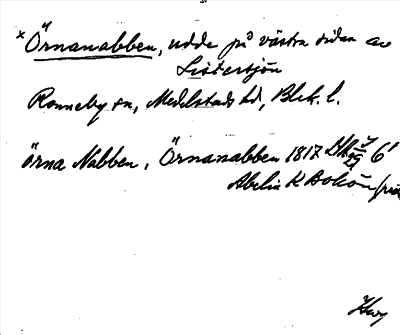 × Örnanabben, udde på västra sidan av
Listersjön
Ronneby sn, Medelstads hd, Blek. l.
Örna Nabben, Örnanabben 1817 6'